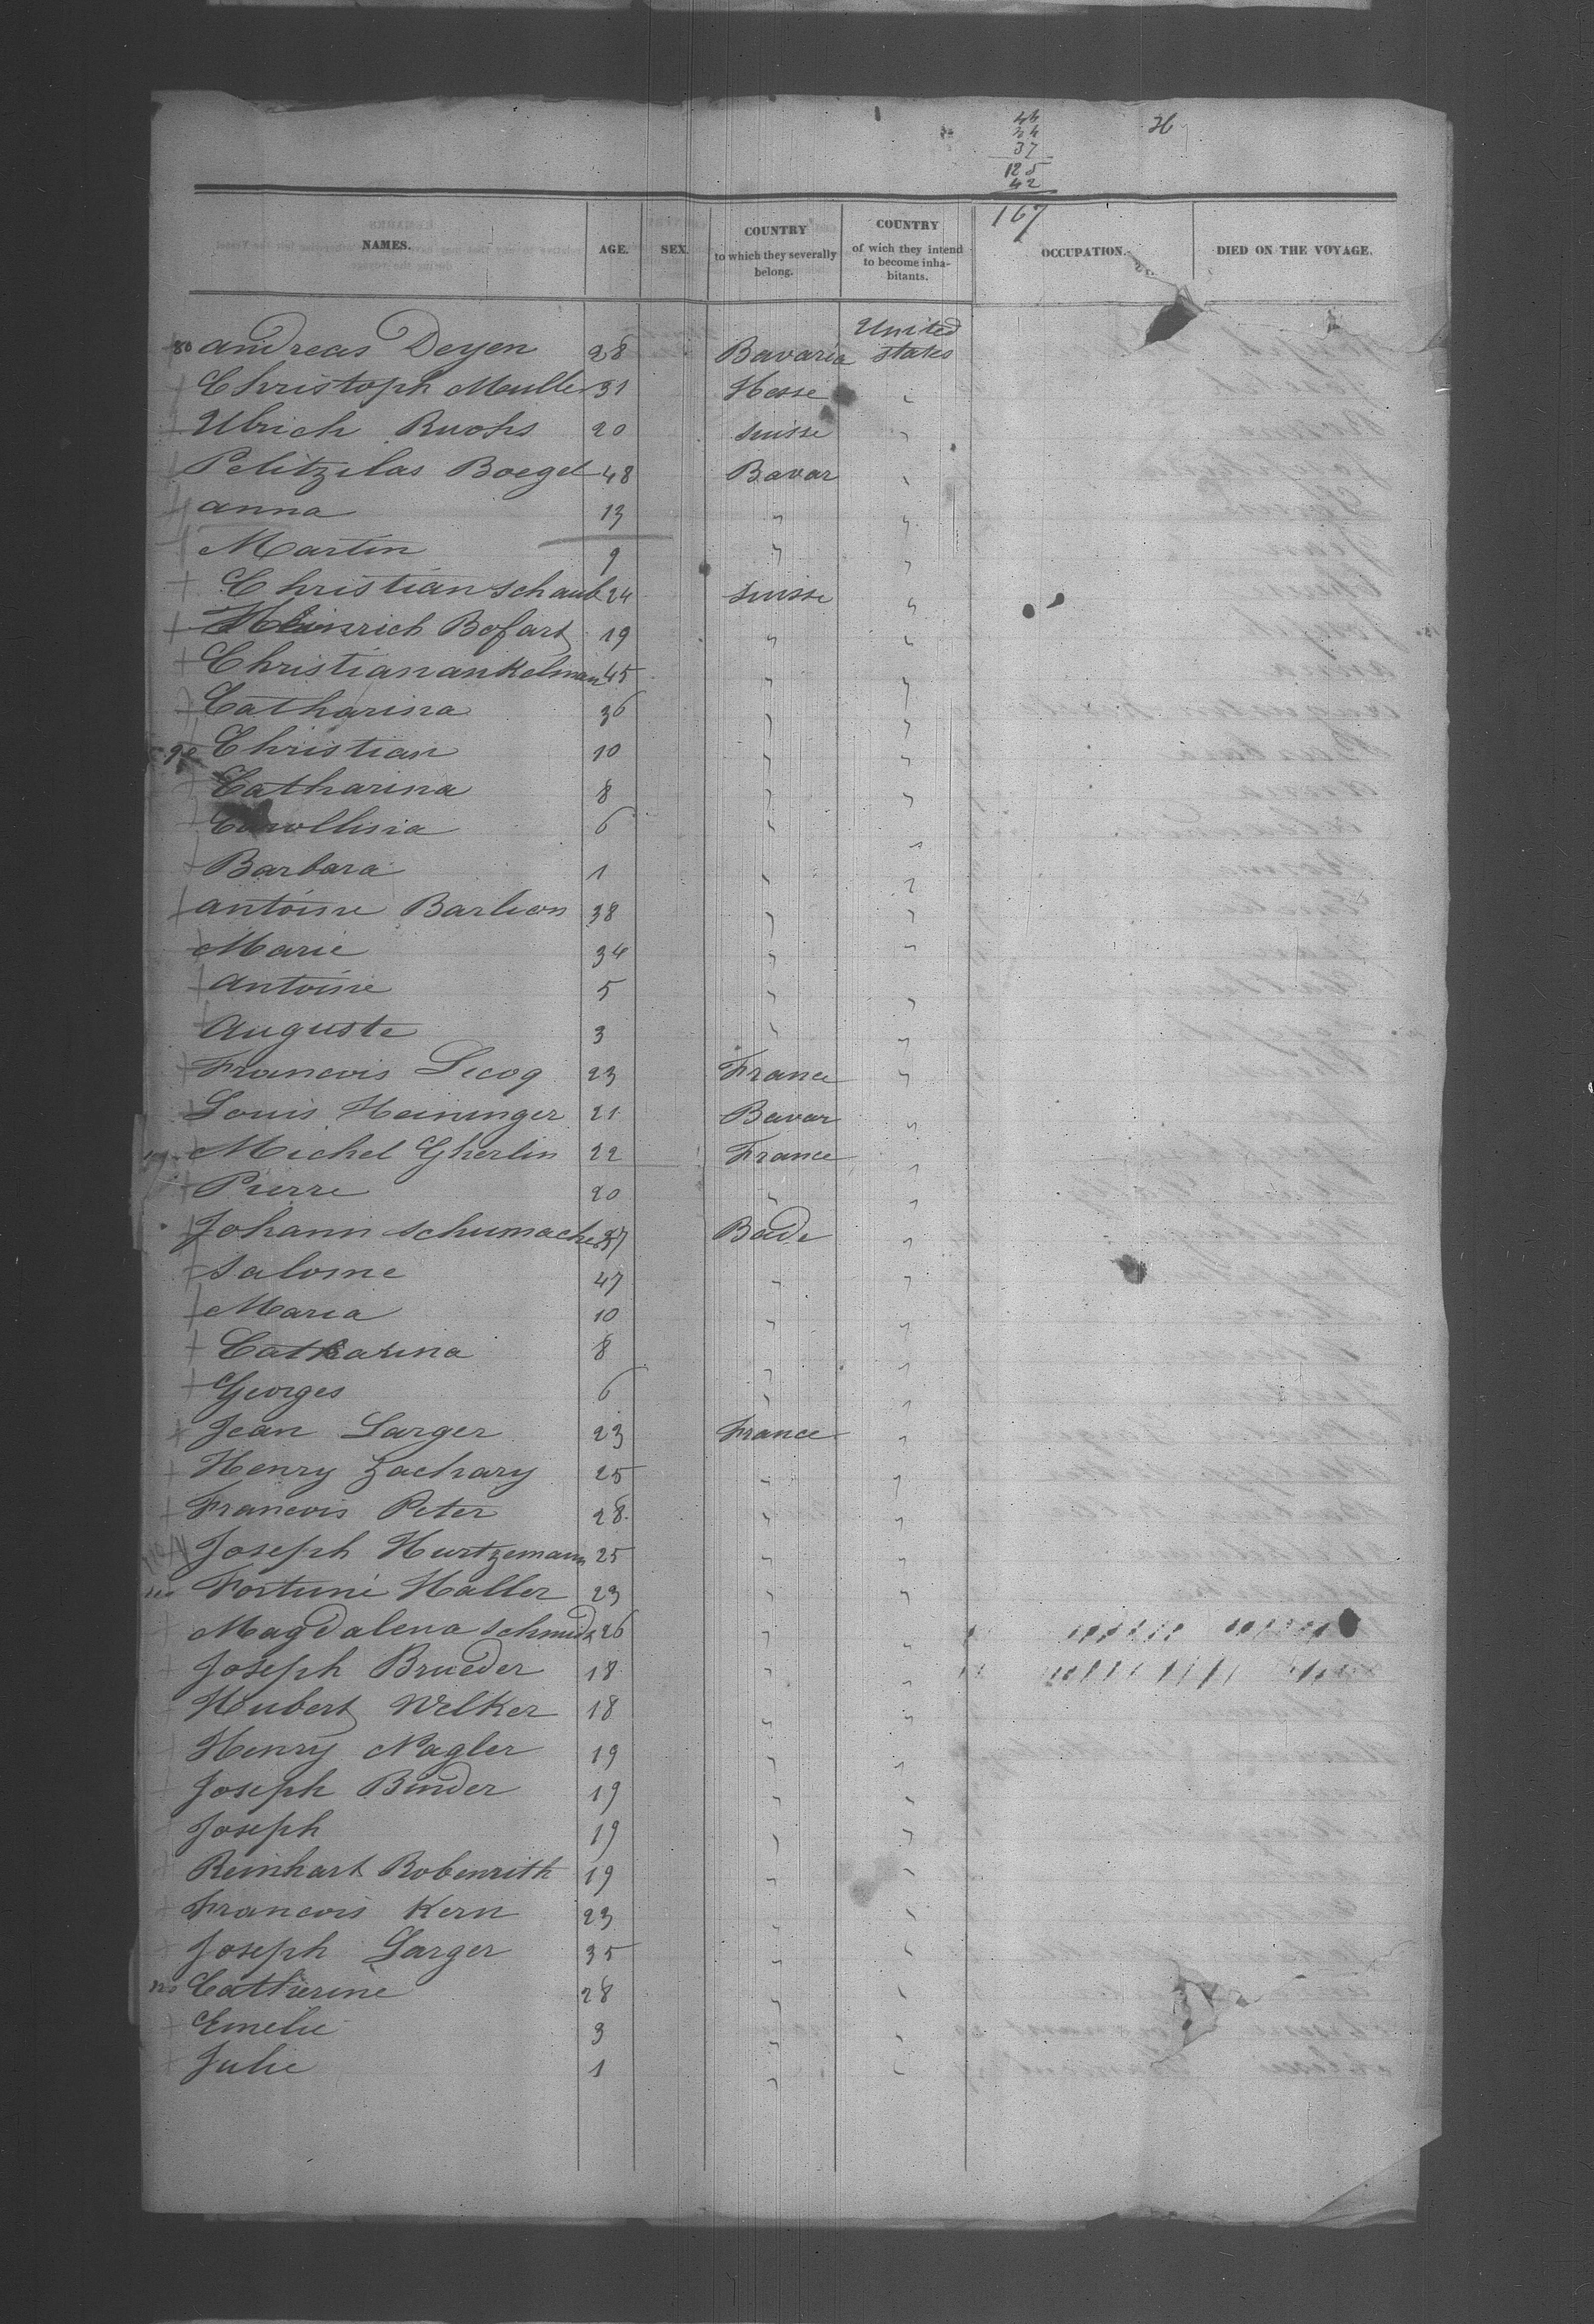 36
46
37
125
42
167
NAMES. AGE. SEX. COUNTRY to which they severally belong. COUNTRY of wich they intend to become inhabitants. OCCUPATION. DIED ON THE VOYAGE.
80 Andreas Deyen 28 Bavaria United States
Christoph Muller 31 Hesse "
Ulrich Ruohs 20 Suisse "
Pelitzilas Boegel 48 Bavar "
Anna 13 " "
Martin 9 " "
Christian Schaub 24 Suisse "
Heinrich Bofart 19 " "
Christian Ankelman 45 " "
Catharina 36 " "
90 Christian 10 " "
Catharina 8 " "
Carollina 6 " "
Barbara 1 " "
Antoine Barlion 38 " "
Marie 34 " "
Antoine 5 " "
Auguste 3 " "
Francois Lecoq 23 France "
Louis Heininger 21 Bavar "
Michel Gherlin 22 France "
Pierre 20 " "
Johann Schumacher Bade "
Salome 47 " "
Maria 10 " "
Catharina 8 " "
Georges 6 " "
Jean Larger 23 France "
Henry Zachary 25 " "
Francois Peter 28 " "
Joseph Hurtzemann 25 " "
Fortuné Haller 23 " "
Magdalena Schmidt 26 " "
Joseph Brueder 18 " "
Hubert Welker 18 " "
Henry Nagler 19 " "
Joseph Binder 19 " "
Joseph 19 " "
Reinhart Robenrith 19 " "
Francois Kern 23 " "
Joseph Larger 35 " "
120 Catherine 28 " "
Emelie 3 " "
Julie 1 " "